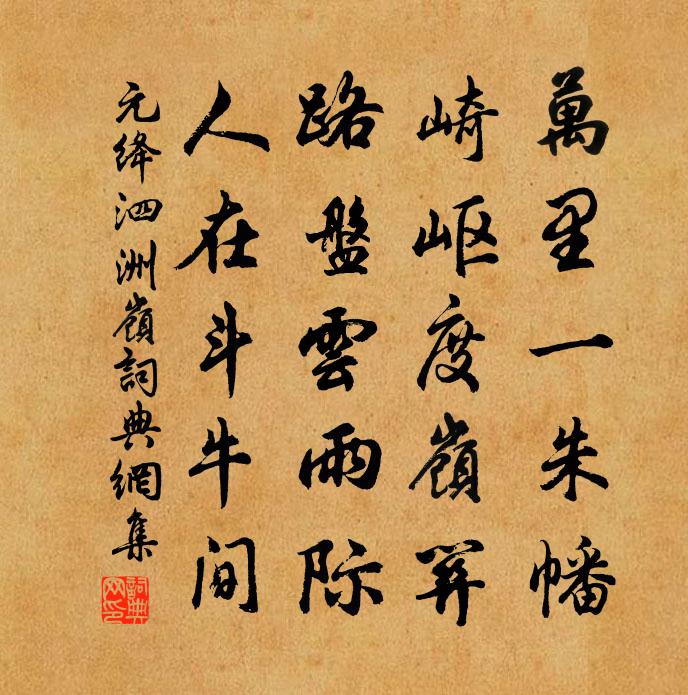 萬里一朱幡
崎岖度嶺關
路盤雲雨际
人在斗牛間
元絳泗洲嶺詞典網集
詞典网印